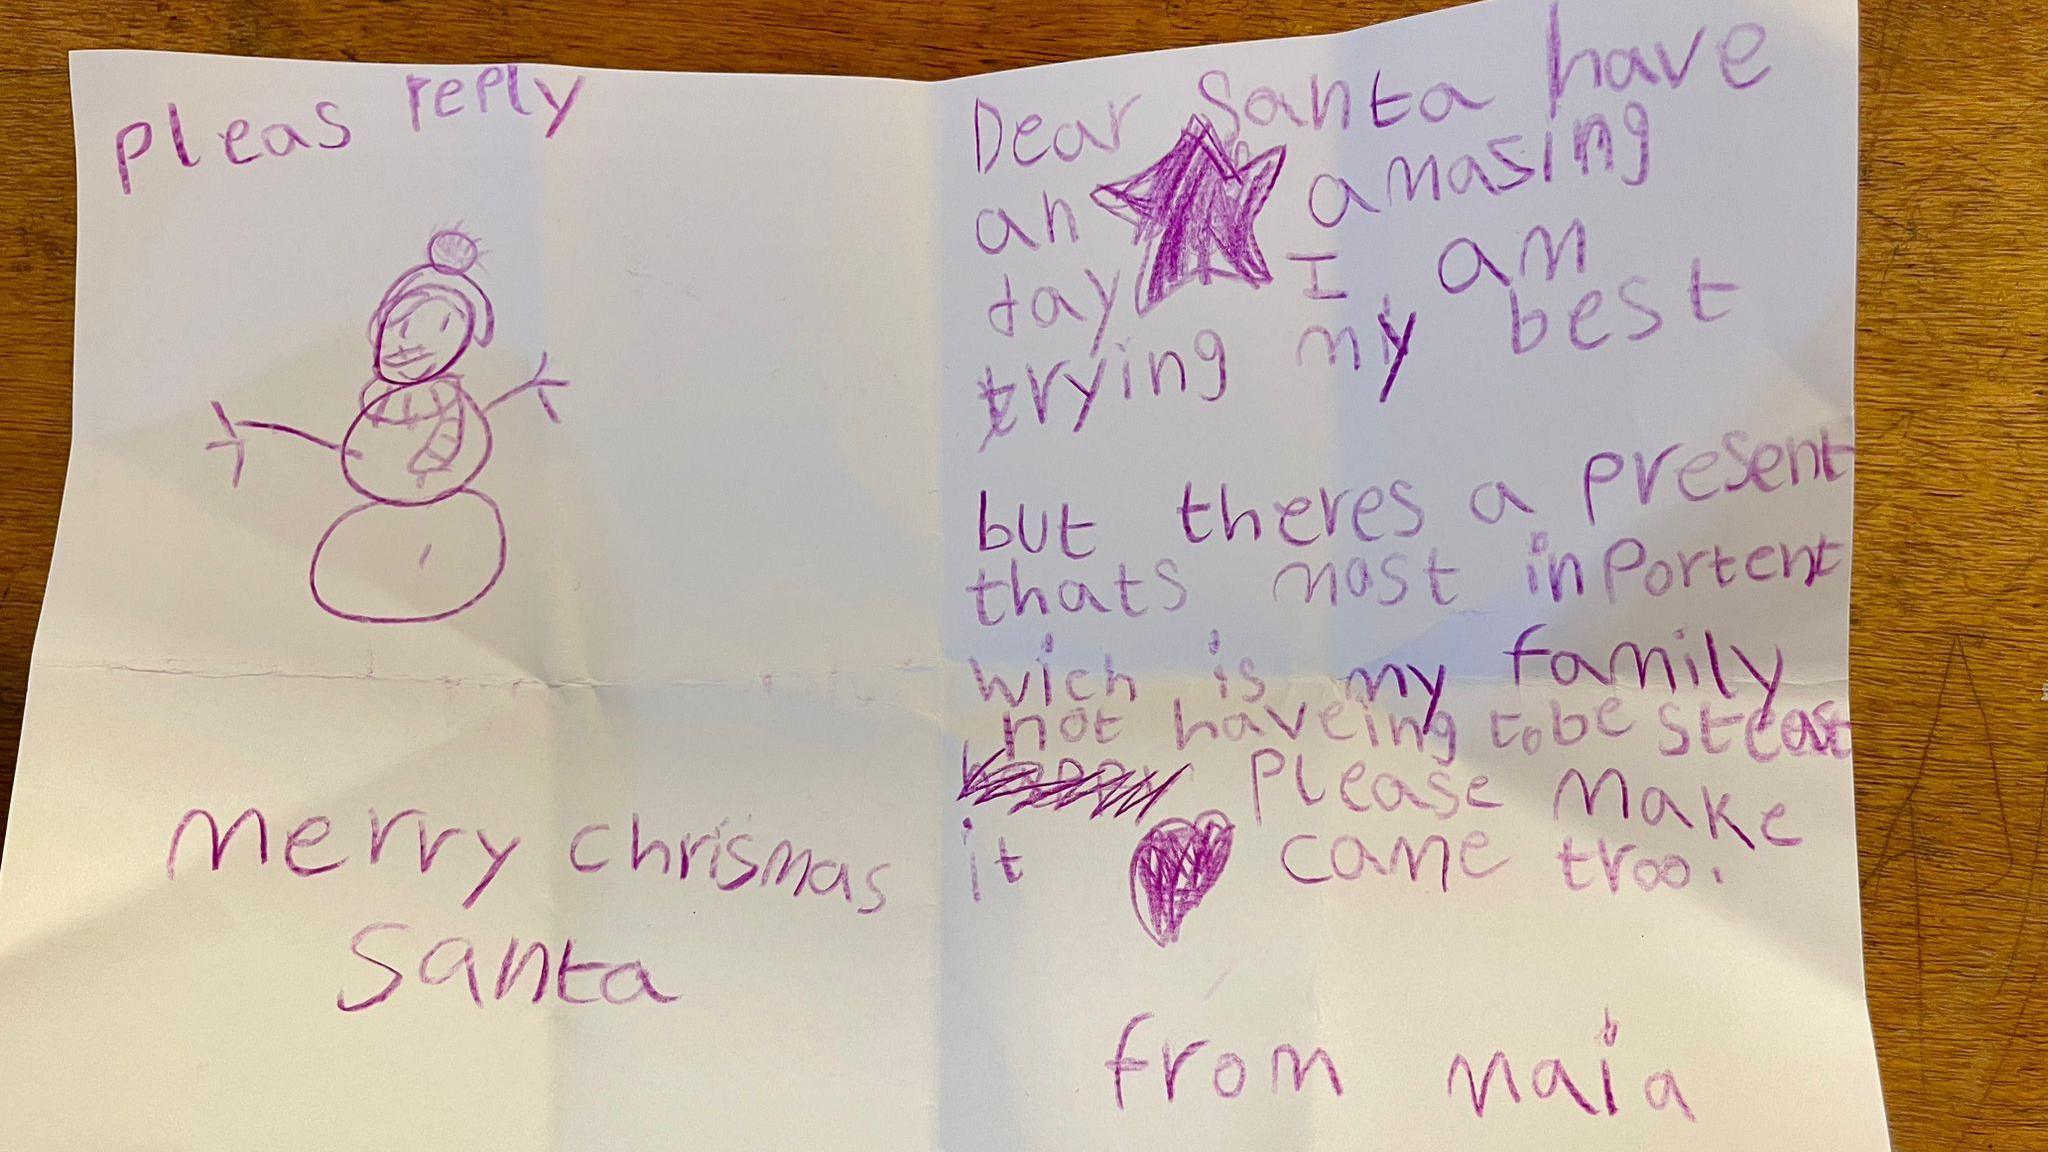 Pleas reply
merry chrismas
Santa
Dear Santa have
an amasing
day I am
trying my best
but theres a present
thats most inportent
wich is my family
not haveing to be
Please make
it came troo.
from maia